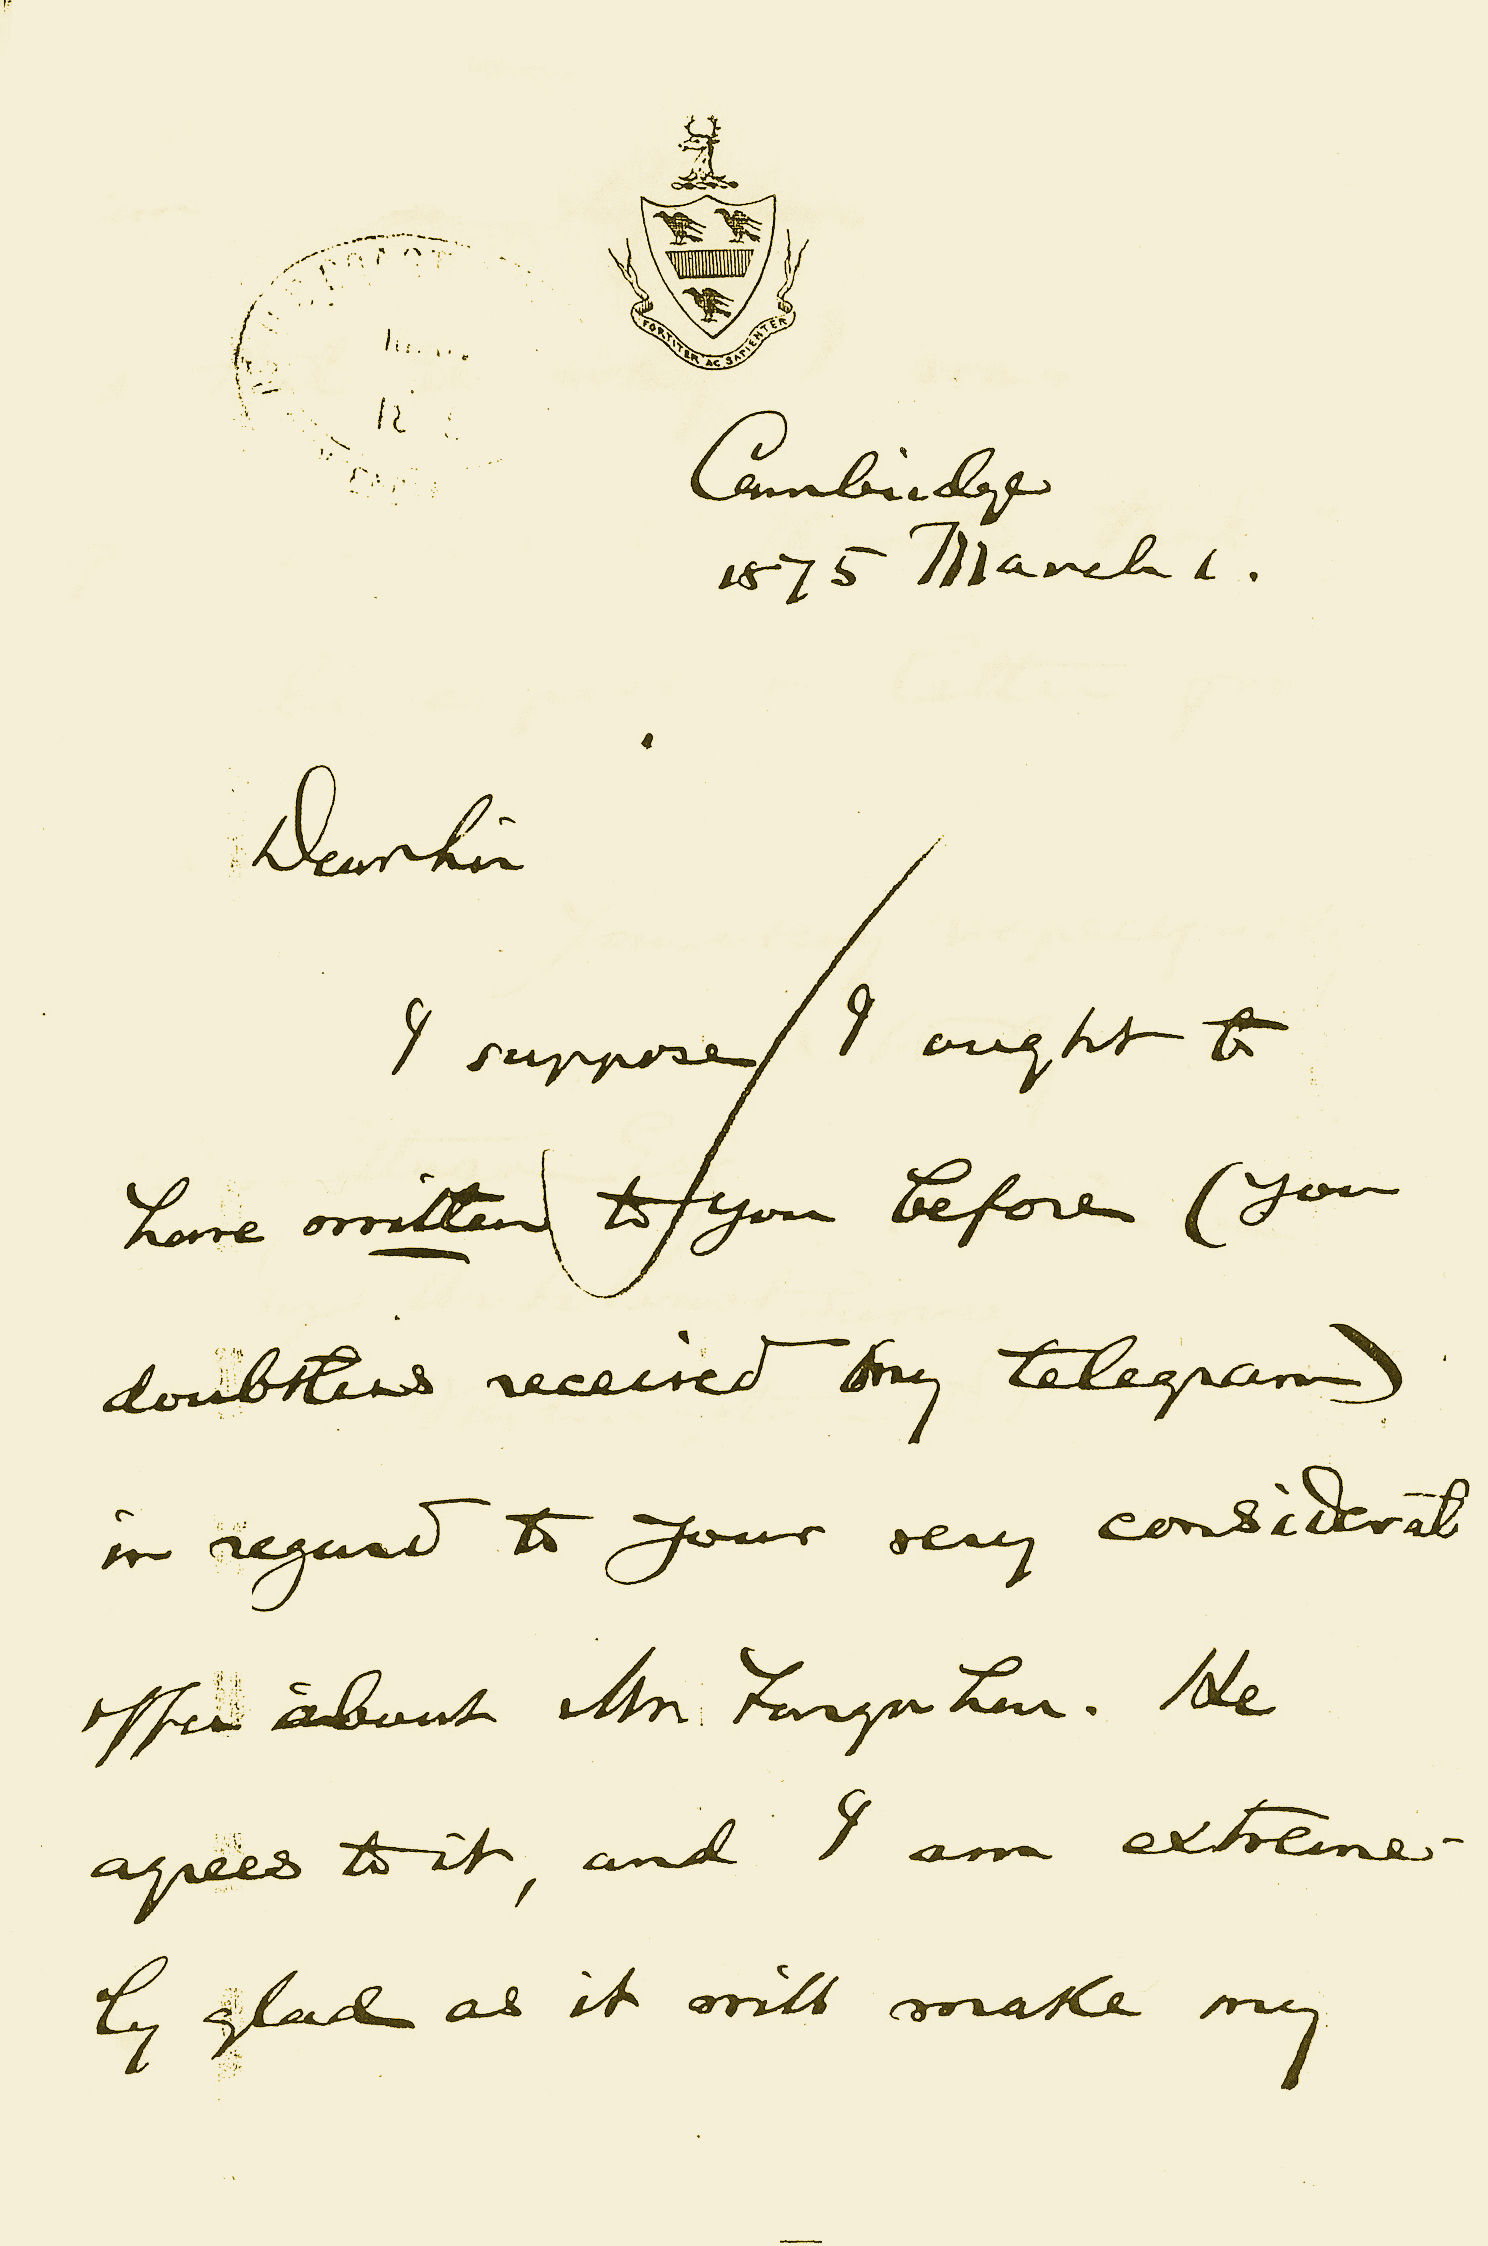 FORTITER AC SAPIENTER
Cambridge
1875 March 1.
Dear Sir
I suppose I ought to
have written to you before (you
doubtless received my telegram)
in regard to your very considerate
offer about Mr Farquhar. He
agrees to it, and I am extreme-
ly glad as it will make my